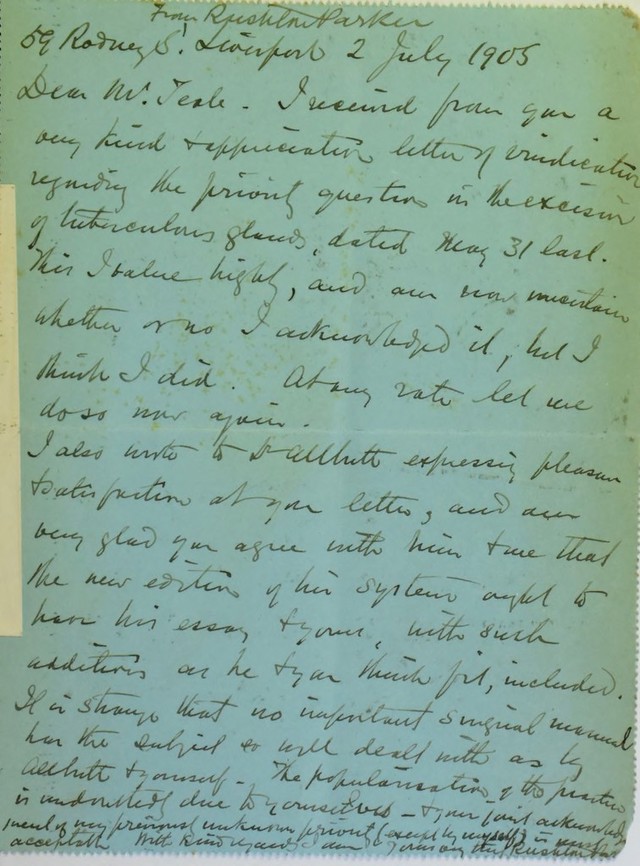 From Rushton Parker
59 Rodney St. Liverpool 2 July 1905
Dear Mr. Teale - I received from you a
very kind & appreciative letter of vindication
regarding the priority question in the excision
of tuberculous glands, dated May 31 last.
This I value highly, and am now uncertain
whether or no I acknowledged it, but I
think I did. At any rate let me
do so now again.
I also wrote to Dr Allbutt expressing pleasure
& satisfaction at your letter, and am
very glad you agree with him & me that
the new edition of his System ought to
have his essay & yours, with such
additions as he & you think fit, included.
It is strange that no important surgical manual
has the subject so well dealt with as by
Allbutt & yourself - The popularisation of the practice
is undoubtedly due to yourselves - & your joint acknowledg-
ment of my previously unknown priority (except by myself) is most
acceptable With kind regards I am Yours Rushton Parker